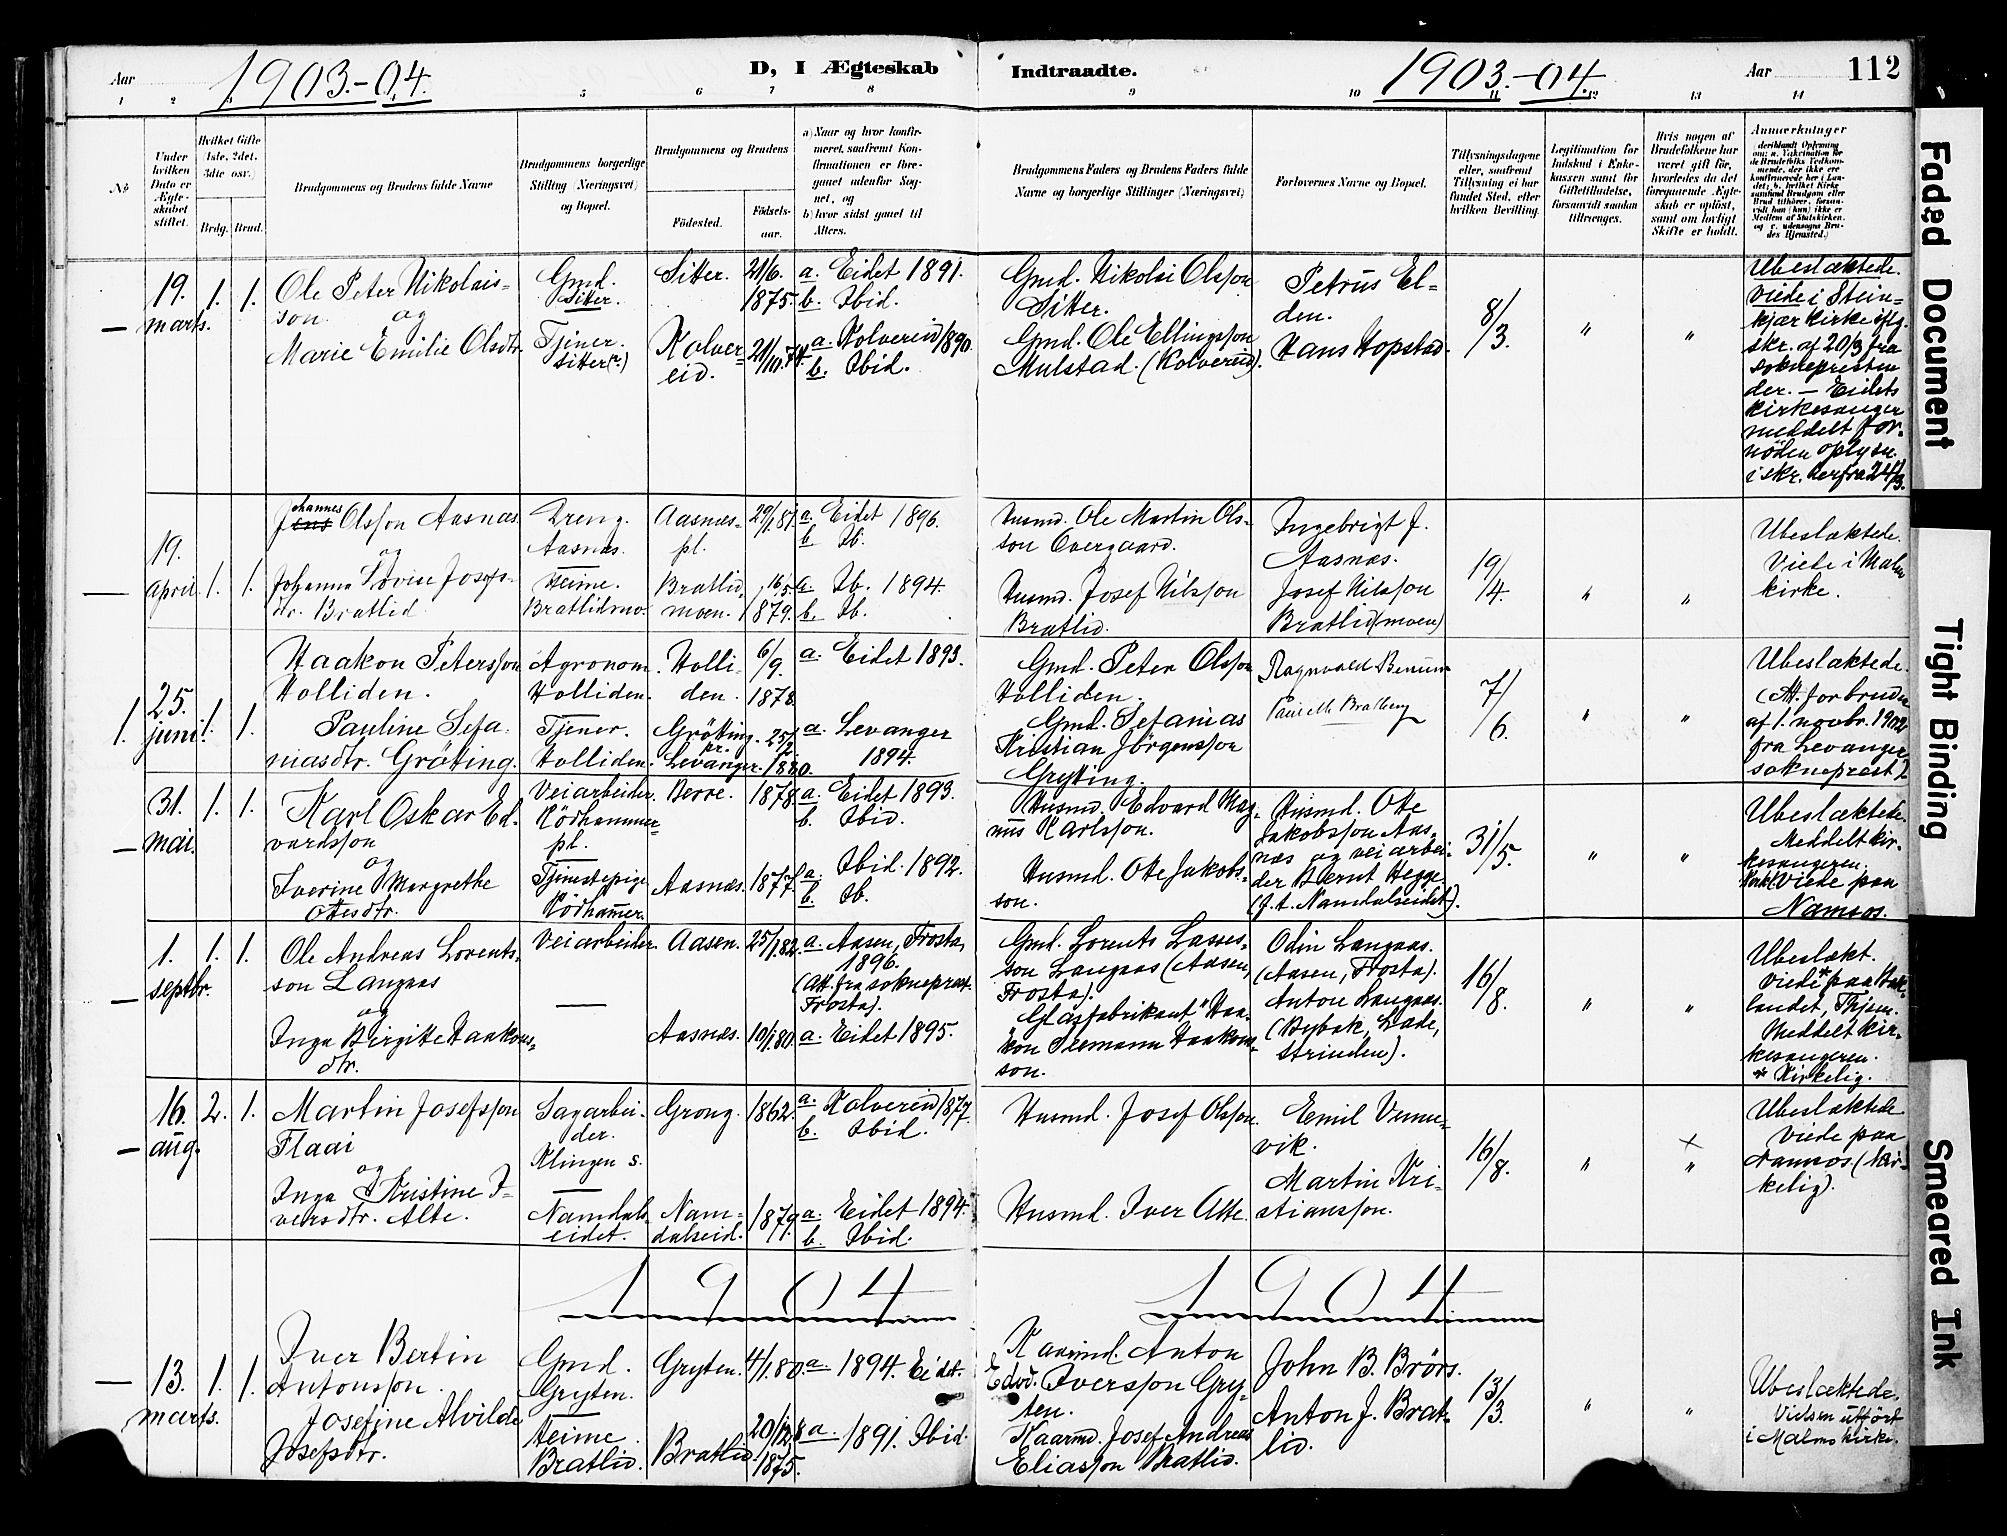 Aar 1903.-04. D, I Ægteskab Indtraadte. 1903.-04. Aar 112
1 2 5 6 7 8 9 10 11 12 13 14
No
Under hvilken Dato er Ægteskabet stiftet.
Hvilket Gifte (1ste, 2det, 3die osv.)
Brdg. Brud.
Brudgommens og Brudens fulde Navne
Brudgommens borgerlige Stilling (Næringsvei) og Bopæl.
Brudgommens og Brudens
Fødested.
Fødsels-aar.
a) Naar og hvor konfirmeret, saafremt Konfirmationen er foregaaet udenfor Sognet, og
b) hvor sidst gaaet til Alters.
Brudgommens Faders og Brudens Faders fulde Navne og borgerlige Stillinger (Næringsvei)
Forlovernes Navne og Bopæl.
Tillysningsdagene eller, saafremt Tillysning ei har fundet Sted, efter hvilken Bevilling.
Legitimation for Indskud i Enkekassen samt for Giftetilladelse, forsaavidt saadan tiltrænges.
Hvis nogen af Brudefolkene har været gift før, hvorledes da det foregaaende Ægteskab er opløst, samt om lovligt Skifte er holdt.
Anmerkninger
19. marts. 1. 1.
Ole Peter Nikolais-
son og
Marie Emilie Olsdtr.
Gmd.
Sitter.
Tjener.
Sitter(?)
Sitter.
Kolver-
eid.
21/6.
1875.
21/10.74.
a. Eidet 1891.
b. Ibid.
a. Kolvereid 1890.
b. Ibid.
Gmd. Nikolai Olsson
Sitter.
Gmd. Ole Ellingsson
Mulstad. (Kolvereid).
Petrus El-
den.
Hans Hopstad.
8/3. " "
Ubeslæktede.
Viede i Stein-
kjær kirke iflg.
skr. af 20/3 fra
soknepresten
der. — Eidets
kirkesanger
meddelt for-
nöden oplysn.
i skr. herfra 24/3.
19. april. 1. 1.
Johannes
Jens Olsson Aasnæs
og
Johanna Lovise Josefs-
dtr. Bratlid
Dreng.
Aasnæs.
Heime.
Bratlidmo.
Aasnæs-
pl.
Bratlid,
moen.
29/1.81.
16/5
1879.
a. Eidet 1896.
b. Ib.
a. Ib. 1894.
b. Ib.
Husmd. Ole Martin Ols-
son Overgaard.
Husmd. Josef Nilsson
Bratlid.
Ingebrigt J.
Aasnæs.
Josef Nilsson
Bratlid(moen)
19/4. " "
Ubeslæktede.
Viede i Malm
kirke.
1. 25. juni. 1. 1.
Haakon Petersson
Holliden.
Pauline Sefa-
niasdtr. Gröting.
Agronom.
Holliden.
Tjener.
Holliden.
Holli-
den.
Grötting.
pr.
Levanger.
6/9.
1878.
25/2.
1880.
a. Eidet 1893.
a. Levanger
1894.
Gmd. Peter Olsson
Holliden.
Gmd. Sefanias
Kristian Jörgensson
Grytting.
Ragnvald Benum
7/6. " "
Ubeslæktede.
(Att. for bruden
af 1. novbr. 1902
fra Levanger
sokneprest).
31. mai. 1. 1.
Karl Oskar Ed-
vardsson
og
Iverine Margrethe
Ottesdtr.
Veiarbeider.
Rödhammer-
pl.
Tjenestepige
Rödhamer.
Verre.
Aasnæs.
1878.
1877.
a. Eidet 1893.
b. Ibid.
a. Ibid. 1892.
b. Ib.
Husmd. Edvard Mag-
nus Karlsson.
Husmd. Ote Jakobs-
son.
Husmd. Ote
Jakobsson Aas-
næs og veiarbei-
der Bernt Hegge
(f. t. Namdalseidet).
31/5. " "
Ubeslæktede.
Meddelt kir-
kesangeren.
Viede paa
Namsos.
1. septbr. 1. 1.
Ole Andreas Lorents-
son Langaas
og
Inga Birgitte Haakons-
dtr.
Veiarbeider
Aasen.
Aasnæs.
25/1.82.
10/1.80.
a. Aasen, Frosta,
1896.
(Att. fra sokneprest.
Frosta).
a. Eidet 1895.
Gmd. Lorents Lasses-
son Langaas (Aasen,
Frosta).
"Glasfabrikant" Haa-
kon Seemann Haakons-
son.
Odin Langaas.
(Aasen, Frosta).
Anton Langaas.
(Bybak, Lade,
Strinden).
16/8. " "
Ubeslækt.
Viede* paa Bak-
landet, Thjem.
Meddelt kir-
kesangeren.
* Kirkelig.
16. aug. 2. 1.
Martin Josefsson
Flaai
og
Inga Kristine I-
versdtr. Alte.
Sagarbei-
der.
Klingen s.
Namdals-
eidet.
Grong.
Nam-
dalseid.
1862.
1879.
a. Kolvereid 1877.
b. Ibid.
a. Eidet 1894.
b. Ibid.
Husmd. Josef Olsson.
Husmd. Iver Alte.
Emil Vemu-
vik.
Martin Kri-
stiansson.
16/8. " × "
Ubeslæktede
Viede paa
Namsos (kir-
kelig).
1904 1904
13. marts. 1. 1.
Iver Bertin
Antonsson.
Josefine Alvilde
Josefsdtr.
Gmd.
Gryten.
Heime.
Bratlid.
Gryten.
Bratlid.
4/1.80.
20/12
1875.
a. 1894. Eidet.
a. 1891. Ibid.
Kaarmd. Anton
Edvd. Iversson Gry-
ten.
Kaarmd. Josef Andreas
Eliasson Bratlid.
John B. Brörs.
Anton J. Brat-
lid.
13/3. " "
Ubeslæktede.
Vielsen utfört
i Malms kirke.
Faded Document
Tight Binding
Smeared Ink